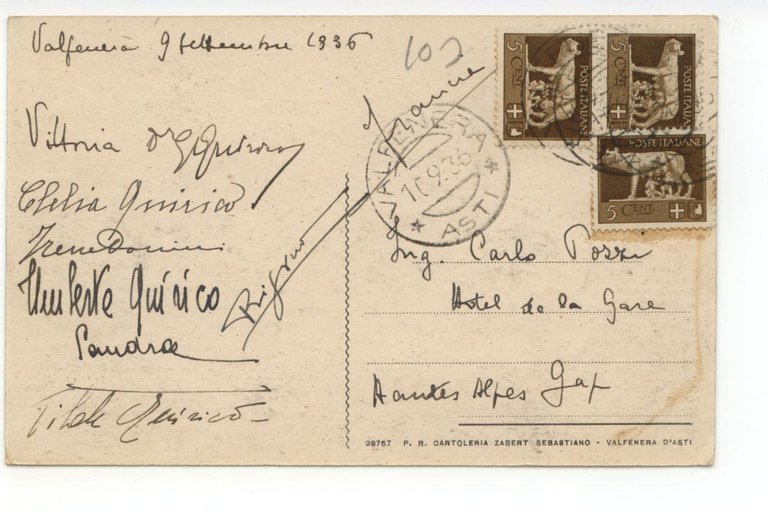 Valfenera 9 settembre 1936
102
5 CENT POSTE ITALIANE
5 CENT POSTE ITALIANE
POSTE ITALIANE
5 CENT
VALFENERA
1 .9.36
* ASTI *
Francia
Vittoria Quirico
Clelia Quirico
Irene
Umberto Quirico
Sandra
Quirico
Ing. Carlo Pozzi
Hotel de la Gare
Hautes Alpes Gap
28757 P. R. CARTOLERIA ZABERT SEBASTIANO - VALFENERA D'ASTI